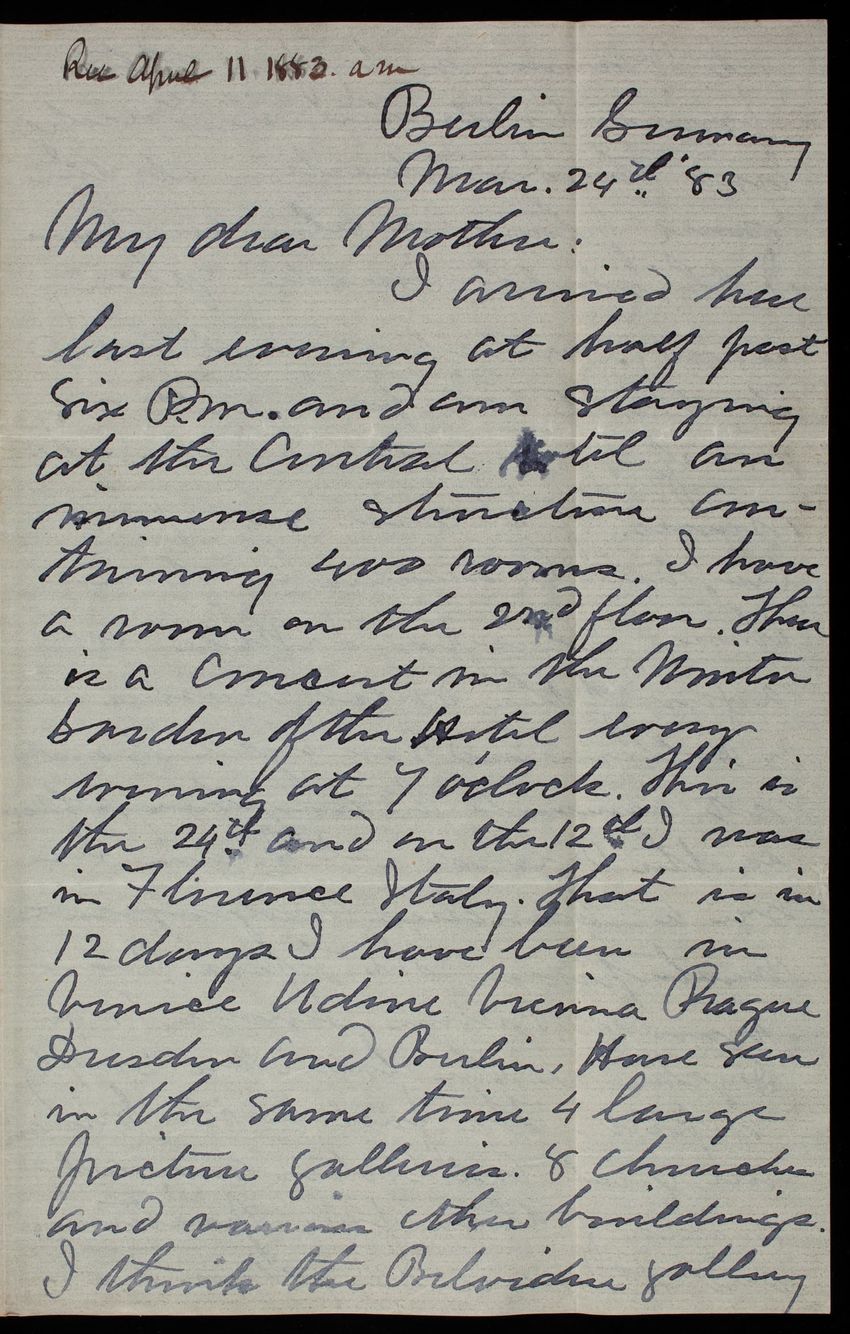 Rec April 11 1883. am
Berlin Germany
Mar. 24th '83
My dear Mother:
I arrived here
last evening at half past
Six P.m. and am staying
at the Central Hotel an
immense structure con-
taining 400 rooms. I have
a room on the 2nd floor. There
is a Concert in the Winter
Garden of the Hotel every
evening at 7 o'clock. This is
the 24th and on the 12th I was
in Florence Italy. That is in
12 days I have been in
Venice Udine Vienna Prague
Dresden and Berlin. Have seen
in the same time 4 large
picture galleries. 8 churches
and various other buildings.
I think the Belvidere gallery